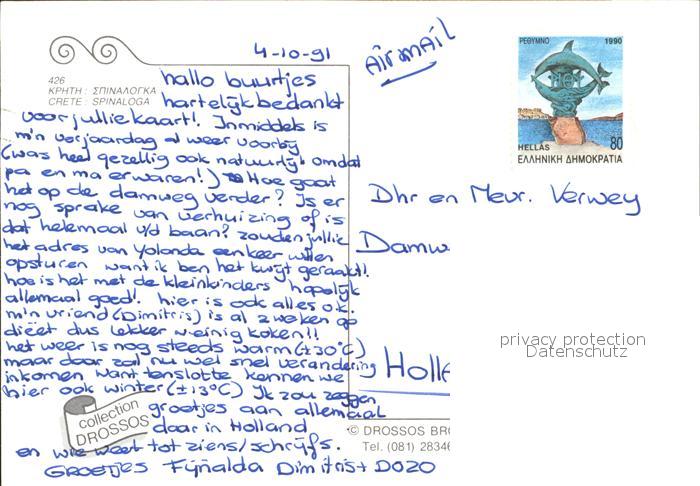 4-10-91
AirmAiL
426
ΚΡΗΤΗ : ΣΠΙΝΑΛΟΓΚΑ
CRETE : SPINALOGA
hallo buurtjes
hartelijk bedankt
voor jullie kaart!. Inmiddels is
m'n verjaardag al weer voorby
(was heel gezellig ook natuurlijk omdat
pa en ma er waren!) Hoe gaat
het op de damweg verder? Is er
nog sprake van verhuizing of is
dat helemaal v/d baan? zouden jullie
het adres van Yolanda een keer willen
opsturen want ik ben het kwijt geraakt!.
hoe is het met de kleinkinders hopelijk
allemaal goed!. hier is ook alles o.k.
m'n vriend (Dimitris) is al 2 weken op
dieët dus lekker weinig koken!!
het weer is nog steeds warm (±30°C)
maar daar zal nu wel snel verandering
inkomen want tenslotte kennen we
hier ook winter (±13°C) Ik zou zeggen
groetjes aan allemaal
daar in Holland
en wie weet tot ziens/schrijfs.
GROETJES Fijnalda Dimitris + DOZO
collection
DROSSOS
© DROSSOS BRO
Tel. (081) 28346
ΡΕΘΥΜΝΟ 1990
HELLAS 80
ΕΛΛΗΝΙΚΗ ΔΗΜΟΚΡΑΤΙΑ
Dhr en Mevr. Verwey
Damw
Holl
privacy protection
Datenschutz